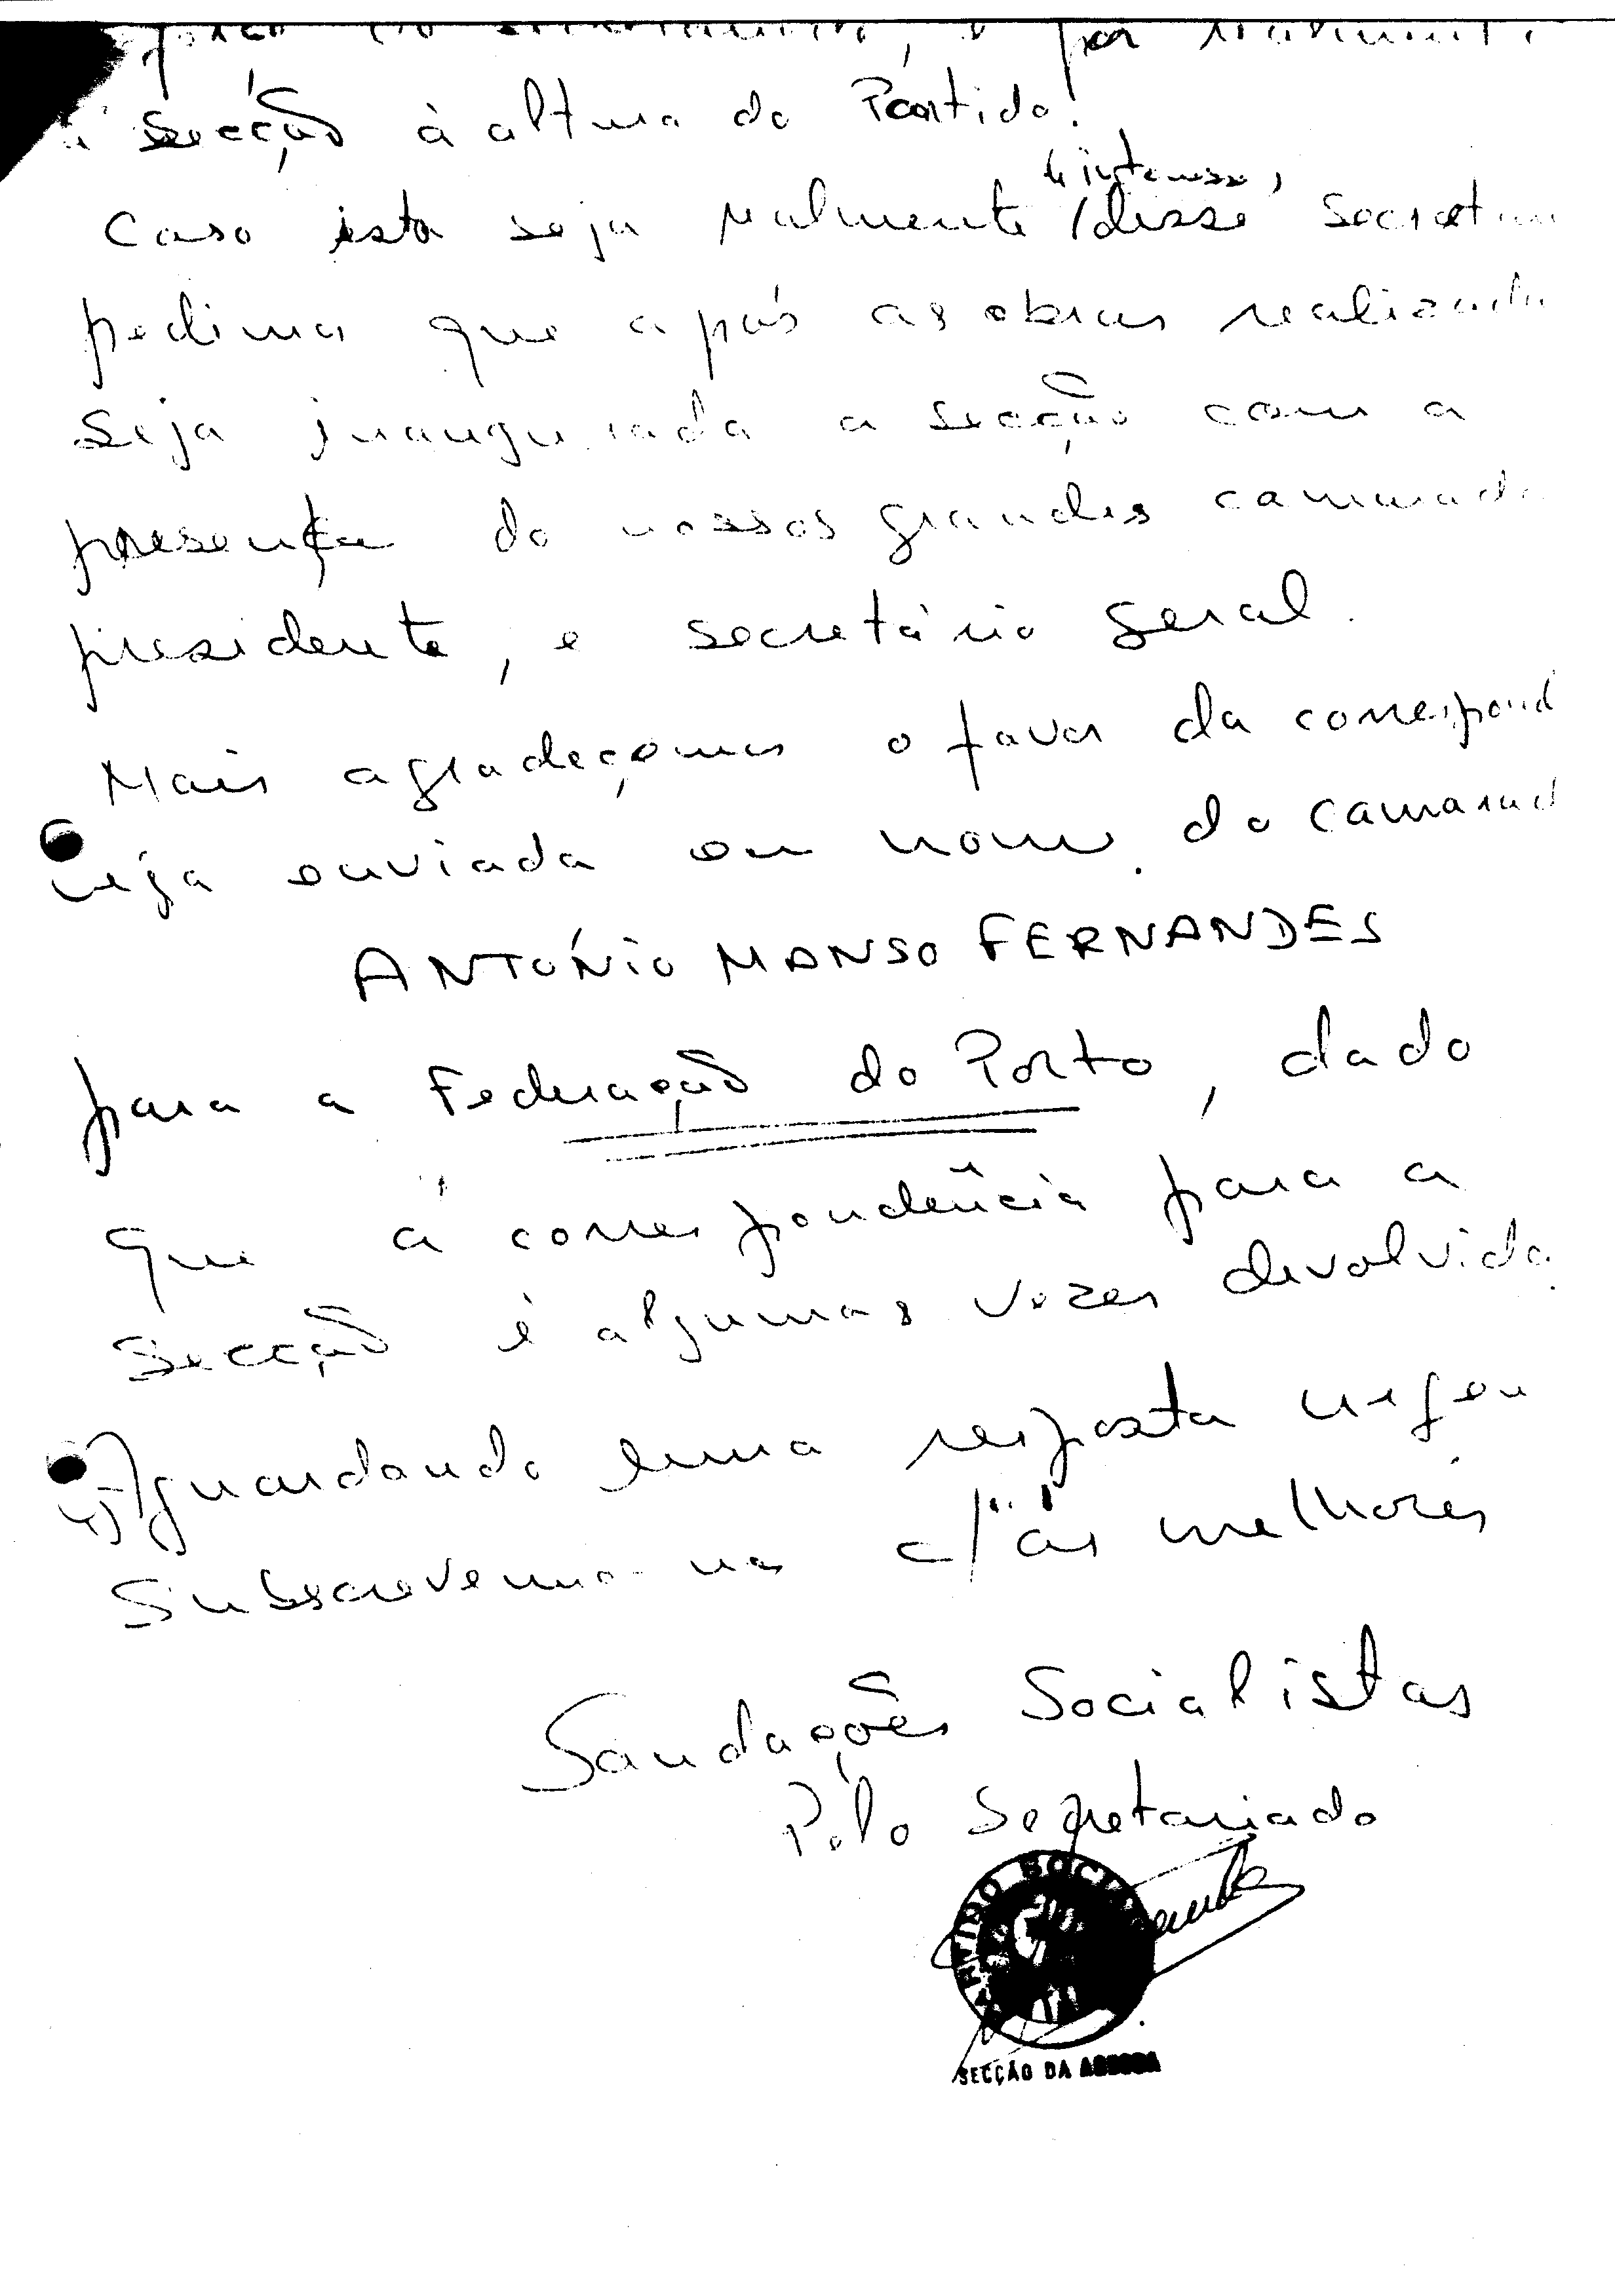 secção à altura do Partido.
de interesse,
Caso ista seja realmente desse
pedimos que após as obras
seja inaugurada a secção com a
presença do nossos grandes
presidente, e secretário geral.
Mais agradeçemos o favor da
seja enviada em nome do
ANTÓNIO MANSO FERNANDES
para a Federação do Porto, dado
que a correspondência para a
secção é algumas vezes devolvida.
Aguardando uma resposta
Subscrevemo-nos c/ as melhores
Saudações Socialistas
Pelo Secretariado
SECÇÃO DA